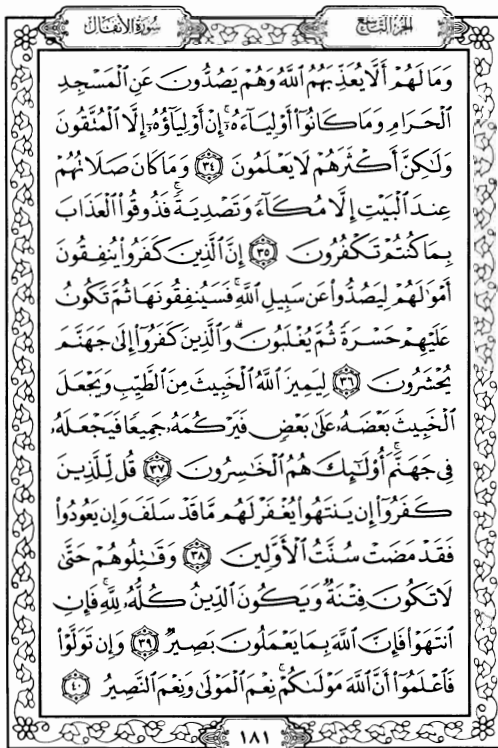 سُورَةُ الأَنفَال
الجُزءُ التَّاسِع
وَمَا لَهُمْ أَلَّا يُعَذِّبَهُمُ ٱللَّهُ وَهُمْ يَصُدُّونَ عَنِ ٱلْمَسْجِدِ
ٱلْحَرَامِ وَمَا كَانُوٓا۟ أَوْلِيَآءَهُۥٓ ۚ إِنْ أَوْلِيَآؤُهُۥٓ إِلَّا ٱلْمُتَّقُونَ
وَلَٰكِنَّ أَكْثَرَهُمْ لَا يَعْلَمُونَ ﴿٣٤﴾ وَمَا كَانَ صَلَاتُهُمْ
عِندَ ٱلْبَيْتِ إِلَّا مُكَآءً وَتَصْدِيَةً ۚ فَذُوقُوا۟ ٱلْعَذَابَ
بِمَا كُنتُمْ تَكْفُرُونَ ﴿٣٥﴾ إِنَّ ٱلَّذِينَ كَفَرُوا۟ يُنفِقُونَ
أَمْوَٰلَهُمْ لِيَصُدُّوا۟ عَن سَبِيلِ ٱللَّهِ ۚ فَسَيُنفِقُونَهَا ثُمَّ تَكُونُ
عَلَيْهِمْ حَسْرَةً ثُمَّ يُغْلَبُونَ ۗ وَٱلَّذِينَ كَفَرُوٓا۟ إِلَىٰ جَهَنَّمَ
يُحْشَرُونَ ﴿٣٦﴾ لِيَمِيزَ ٱللَّهُ ٱلْخَبِيثَ مِنَ ٱلطَّيِّبِ وَيَجْعَلَ
ٱلْخَبِيثَ بَعْضَهُۥ عَلَىٰ بَعْضٍ فَيَرْكُمَهُۥ جَمِيعًا فَيَجْعَلَهُۥ
فِى جَهَنَّمَ ۚ أُو۟لَٰٓئِكَ هُمُ ٱلْخَٰسِرُونَ ﴿٣٧﴾ قُل لِّلَّذِينَ
كَفَرُوٓا۟ إِن يَنتَهُوا۟ يُغْفَرْ لَهُم مَّا قَدْ سَلَفَ وَإِن يَعُودُوا۟
فَقَدْ مَضَتْ سُنَّتُ ٱلْأَوَّلِينَ ﴿٣٨﴾ وَقَٰتِلُوهُمْ حَتَّىٰ
لَا تَكُونَ فِتْنَةٌ وَيَكُونَ ٱلدِّينُ كُلُّهُۥ لِلَّهِ ۚ فَإِنِ
ٱنتَهَوْا۟ فَإِنَّ ٱللَّهَ بِمَا يَعْمَلُونَ بَصِيرٌ ﴿٣٩﴾ وَإِن تَوَلَّوْا۟
فَٱعْلَمُوٓا۟ أَنَّ ٱللَّهَ مَوْلَىٰكُمْ ۚ نِعْمَ ٱلْمَوْلَىٰ وَنِعْمَ ٱلنَّصِيرُ ﴿٤٠﴾
١٨١